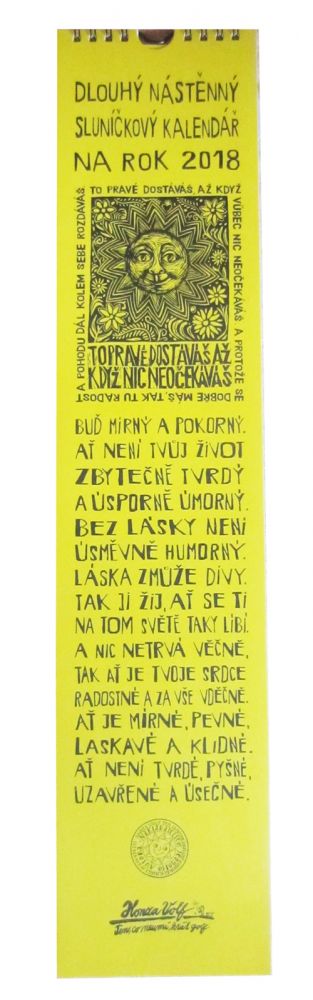 DLOUHÝ NÁSTĚNNÝ
SLUNÍČKOVÝ KALENDÁŘ
NA ROK 2018
TO PRAVÉ DOSTÁVÁŠ, AŽ KDYŽ
VŮBEC NIC NEOČEKÁVÁŠ A PROTOŽE SE
DOBŘE MÁŠ, TAK TU RADOST
A POHODU DÁL KOLEM SEBE ROZDÁVÁŠ.
TO PRAVÉ DOSTÁVÁŠ AŽ
KDYŽ NIC NEOČEKÁVÁŠ
BUĎ MÍRNÝ A POKORNÝ.
AŤ NENÍ TVŮJ ŽIVOT
ZBYTEČNĚ TVRDÝ
A ÚSPORNĚ ÚMORNÝ.
BEZ LÁSKY NENÍ
ÚSMĚVNĚ HUMORNÝ.
LÁSKA ZMŮŽE DIVY.
TAK JI ŽIJ, AŤ SE TI
NA TOM SVĚTĚ TAKY LÍBÍ.
A NIC NETRVÁ VĚČNĚ,
TAK AŤ JE TVOJE SRDCE
RADOSTNÉ A ZA VŠE VDĚČNÉ.
AŤ JE MÍRNÉ, PEVNÉ,
LASKAVÉ A KLIDNÉ.
AŤ NENÍ TVRDÉ, PYŠNÉ,
UZAVŘENÉ A ÚSEČNÉ.
Honza Volf
Ten, co neumí hrát golf